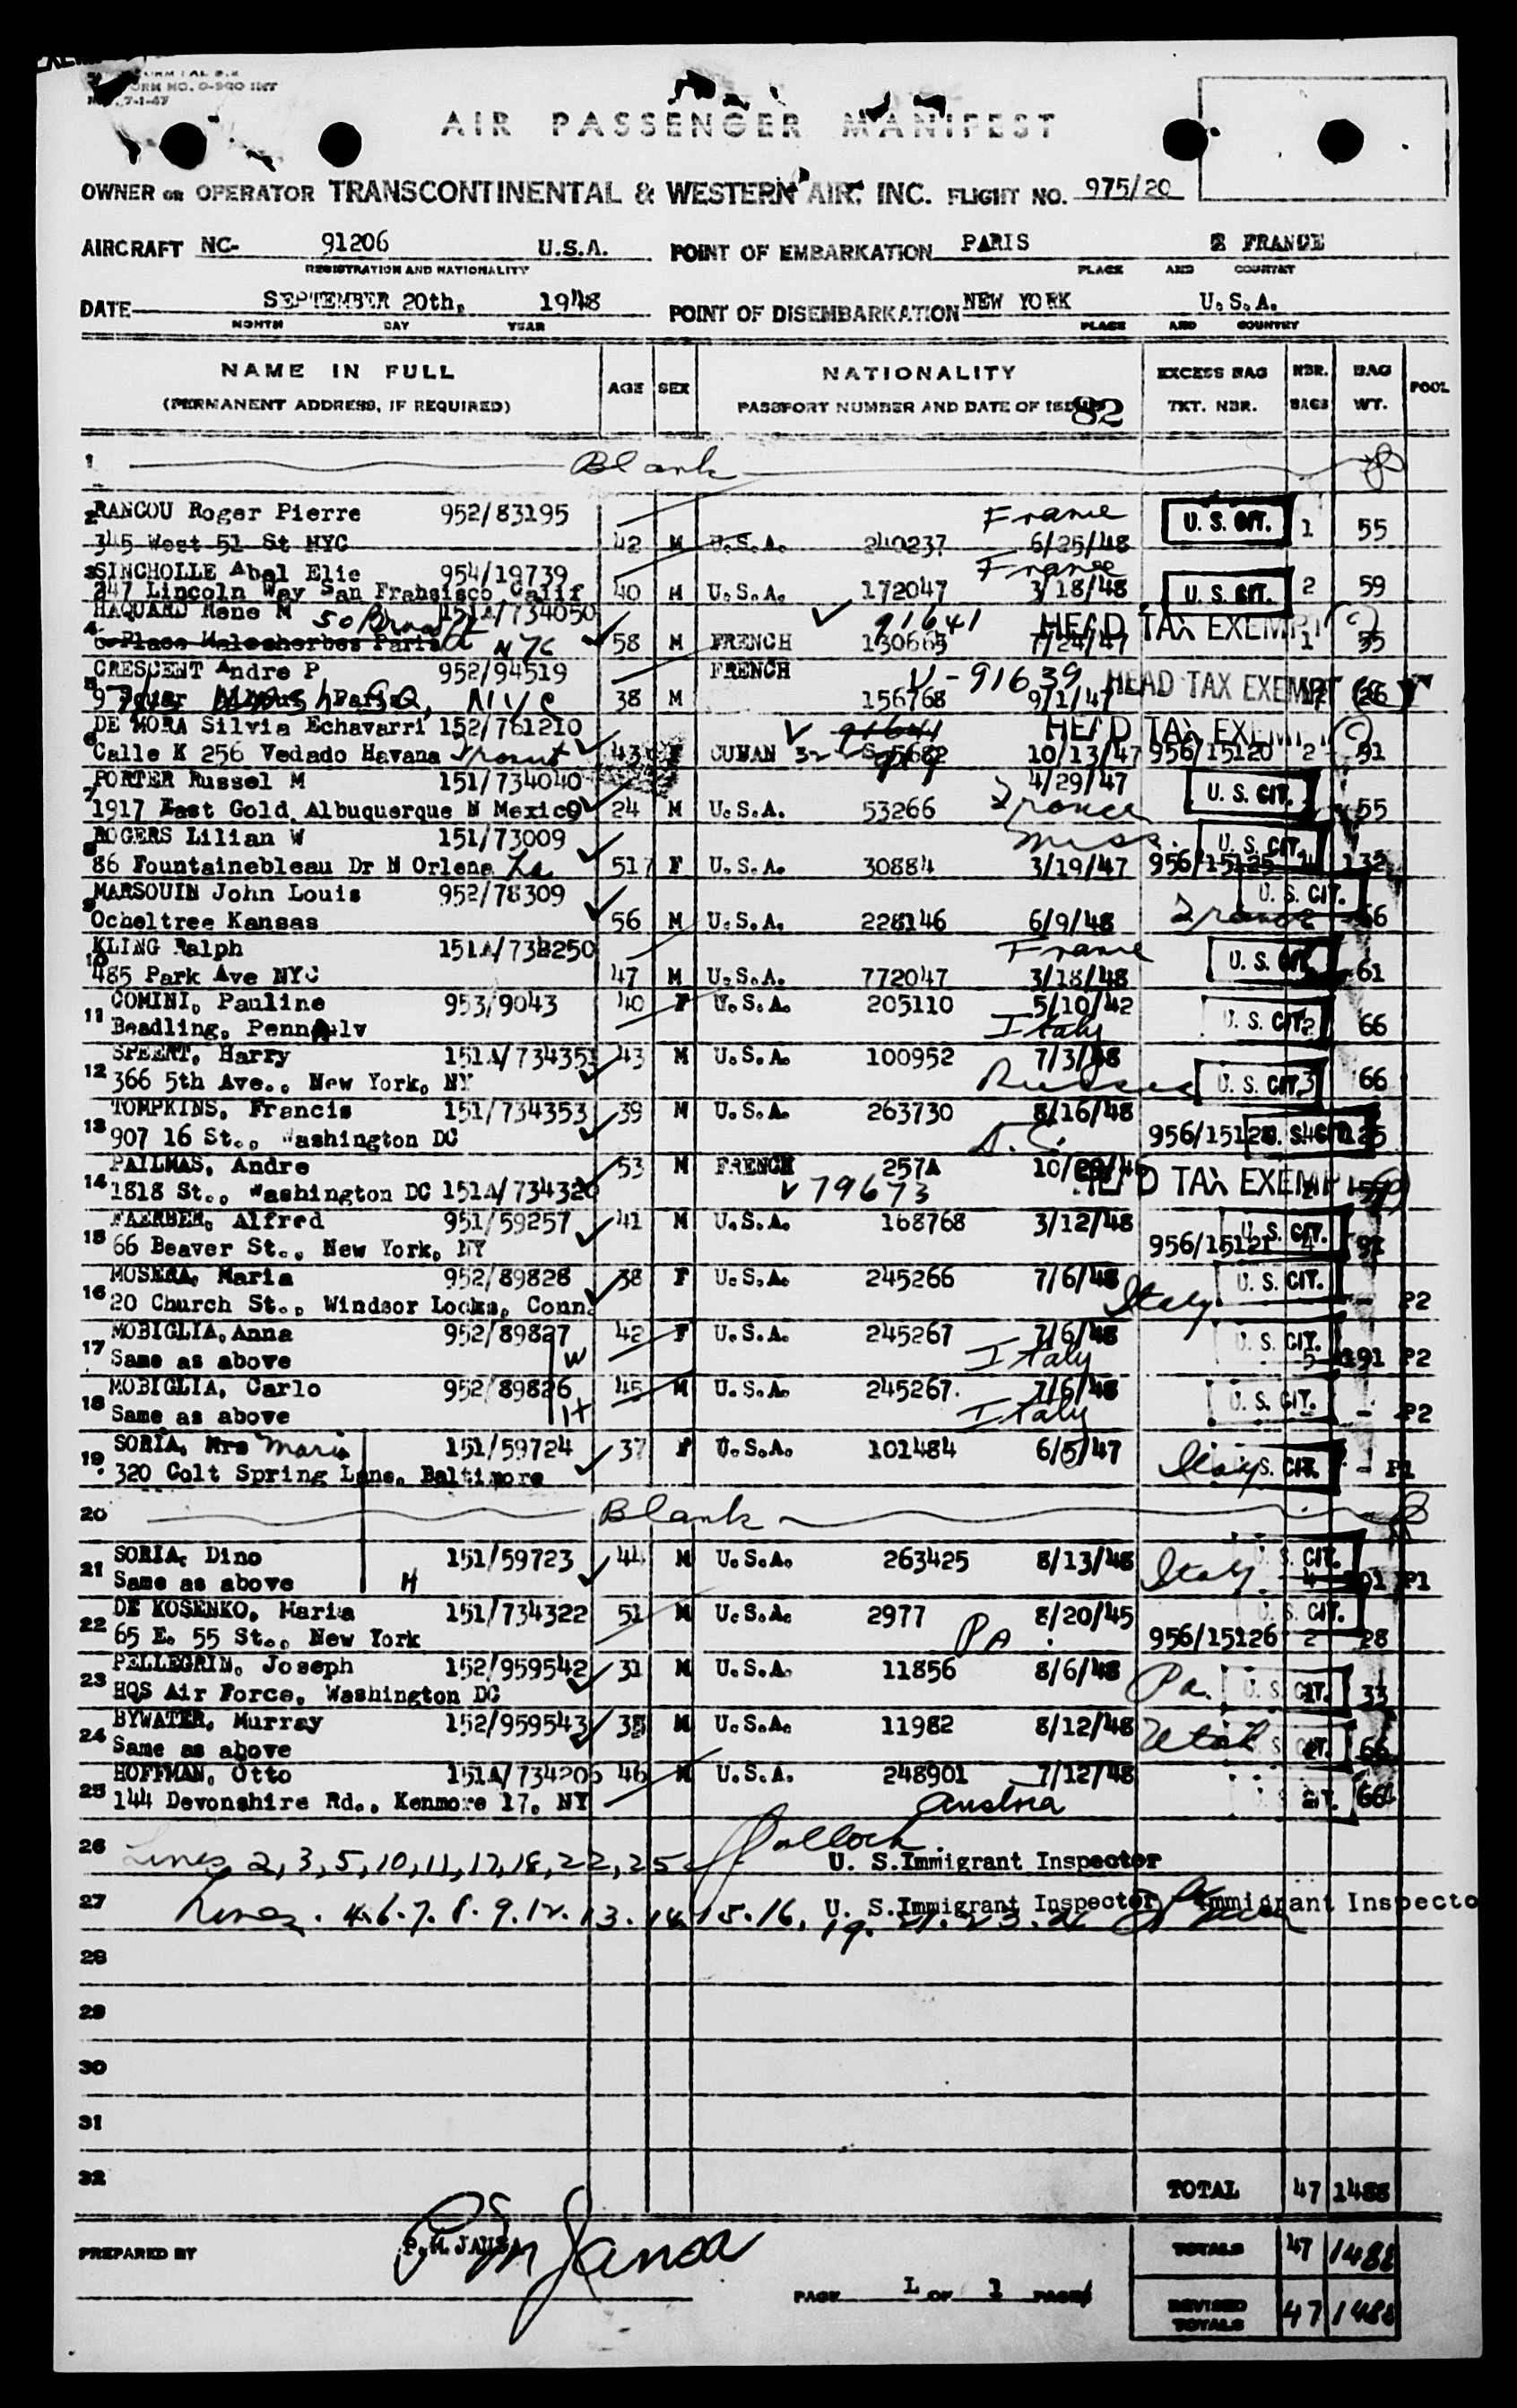 FORM NO. 0-500 INT
7-1-47
AIR PASSENGER MANIFEST
OWNER OR OPERATOR TRANSCONTINENTAL & WESTERN AIR, INC. FLIGHT NO. 975/20
AIRCRAFT NC- 91206 U.S.A. POINT OF EMBARKATION PARIS FRANCE
REGISTRATION AND NATIONALITY PLACE AND COUNTRY
DATE SEPTEMBER 20th, 1948 POINT OF DISEMBARKATION NEW YORK U.S.A.
MONTH DAY YEAR PLACE AND COUNTRY
NAME IN FULL AGE SEX NATIONALITY EXCESS BAG NBR. BAG POOL
(PERMANENT ADDRESS, IF REQUIRED) PASSPORT NUMBER AND DATE OF 82 TKT. NBR. BAGS WT.
1 Blank
2 RANCOU Roger Pierre 952/83195 France U. S. CIT. 1 55
345 West 51 St NYC 42 M U.S.A. 240237 6/25/48
3 SINCHOLLE Abel Elie 954/19739 France
247 Lincoln Way San Franbsisco Calif 40 M U.S.A. 172047 3/18/48 U. S. CIT. 2 59
4 HAQUARD Rene M 151A/734050 50 Broad St NYC V 91641 HEAD TAX EXEMPT
Place Malesherbes Paris 58 M FRENCH 130665 7/24/47 1 55
5 CRESCENT Andre P 952/94519 FRENCH V-91639 HEAD TAX EXEMPT
9 NYC 38 M 156768 9/1/47 26
6 DE MORA Silvia Echavarri 152/761210 V 91641 HEAD TAX EXEMPT
Calle K 256 Vedado Havana 43 F CUBAN 10/13/47 956/15120 2 91
7 PORTER Russel M 151/734040 4/29/47 U. S. CIT.
1917 East Gold Albuquerque N Mexico 24 M U.S.A. 53266 France 55
8 ROGERS Lilian W 151/73009 Miss. U. S. CIT.
86 Fountainebleau Dr N Orlens La 51 F U.S.A. 30884 3/19/47 956/15125 4 132
9 MARSOUIN John Louis 952/78309 U. S. CIT.
Ocheltree Kansas 56 M U.S.A. 228146 6/9/48 France 2 66
10 KLING Ralph 151A/738250 France U. S. CIT.
485 Park Ave NYC 47 M U.S.A. 772047 3/18/48 61
11 COMINI, Pauline 953/9043 40 F U.S.A. 205110 5/10/42
Beadling, Pennsylv Italy U. S. CIT. 2 66
12 SPEERT, Harry 151A/734351 43 M U.S.A. 100952 7/3/48
366 5th Ave., New York, NY Russia U. S. CIT. 3 66
13 TOMPKINS, Francis 151/734353 39 M U.S.A. 263730 8/16/48
907 16 St., Washington DC 956/15128 U. S. CIT. 125
14 PAILMAS, Andre 53 M FRENCH 257A 10/29/46
1818 St., Washington DC 151A/734320 V 79673 HEAD TAX EXEMPT
15 FAERBER, Alfred 951/59257 41 M U.S.A. 168768 3/12/48 U. S. CIT.
66 Beaver St., New York, NY 956/15121 4 91
16 MOSERA, Maria 952/89828 38 F U.S.A. 245266 7/6/48 U. S. CIT.
20 Church St., Windsor Locks, Conn. Italy - P2
17 MOBIGLIA, Anna 952/89827 42 F U.S.A. 245267 7/6/48 U. S. CIT.
Same as above W Italy 5 191 P2
18 MOBIGLIA, Carlo 952/89826 45 M U.S.A. 245267. 7/6/48 U. S. CIT.
Same as above H Italy - P2
19 SORIA, Mrs Maria 151/59724 37 F U.S.A. 101484 6/5/47
320 Colt Spring Lane, Baltimore Italy U. S. CIT. - P1
20 Blank
21 SORIA, Dino 151/59723 44 M U.S.A. 263425 8/13/48 U. S. CIT.
Same as above H Italy 4 P1
22 DE KOSENKO, Maria 151/734322 51 M U.S.A. 2977 8/20/45 U. S. CIT.
65 E. 55 St., New York PA 956/15126 2 28
23 PELLEGRIN, Joseph 152/959542 31 M U.S.A. 11856 8/6/48
HQS Air Force, Washington DC Pa. U. S. CIT. 33
24 BYWATER, Murray 152/959543 35 M U.S.A. 11982 8/12/48
Same as above Utah U. S. CIT. 66
25 HOFFMAN, Otto 151A/734206 46 M U.S.A. 248901 7/12/48
144 Devonshire Rd., Kenmore 17, NY Austria U. S. CIT. 66
26 Lines 2, 3, 5, 10, 11, 17, 18, 22, 25 U. S. Immigrant Inspector
27 Lines. 4. 6. 7. 8. 9. 12. 13. 14. 15. 16. U. S. Immigrant Inspector Immigrant Inspecto
19. 21. 23. 24
28
29
30
31
32
TOTAL 47 1488
PREPARED BY P.M. JANSA TOTALS 47 1488
PAGE 1 OF 1 PAGES REVISED TOTALS 47 1488